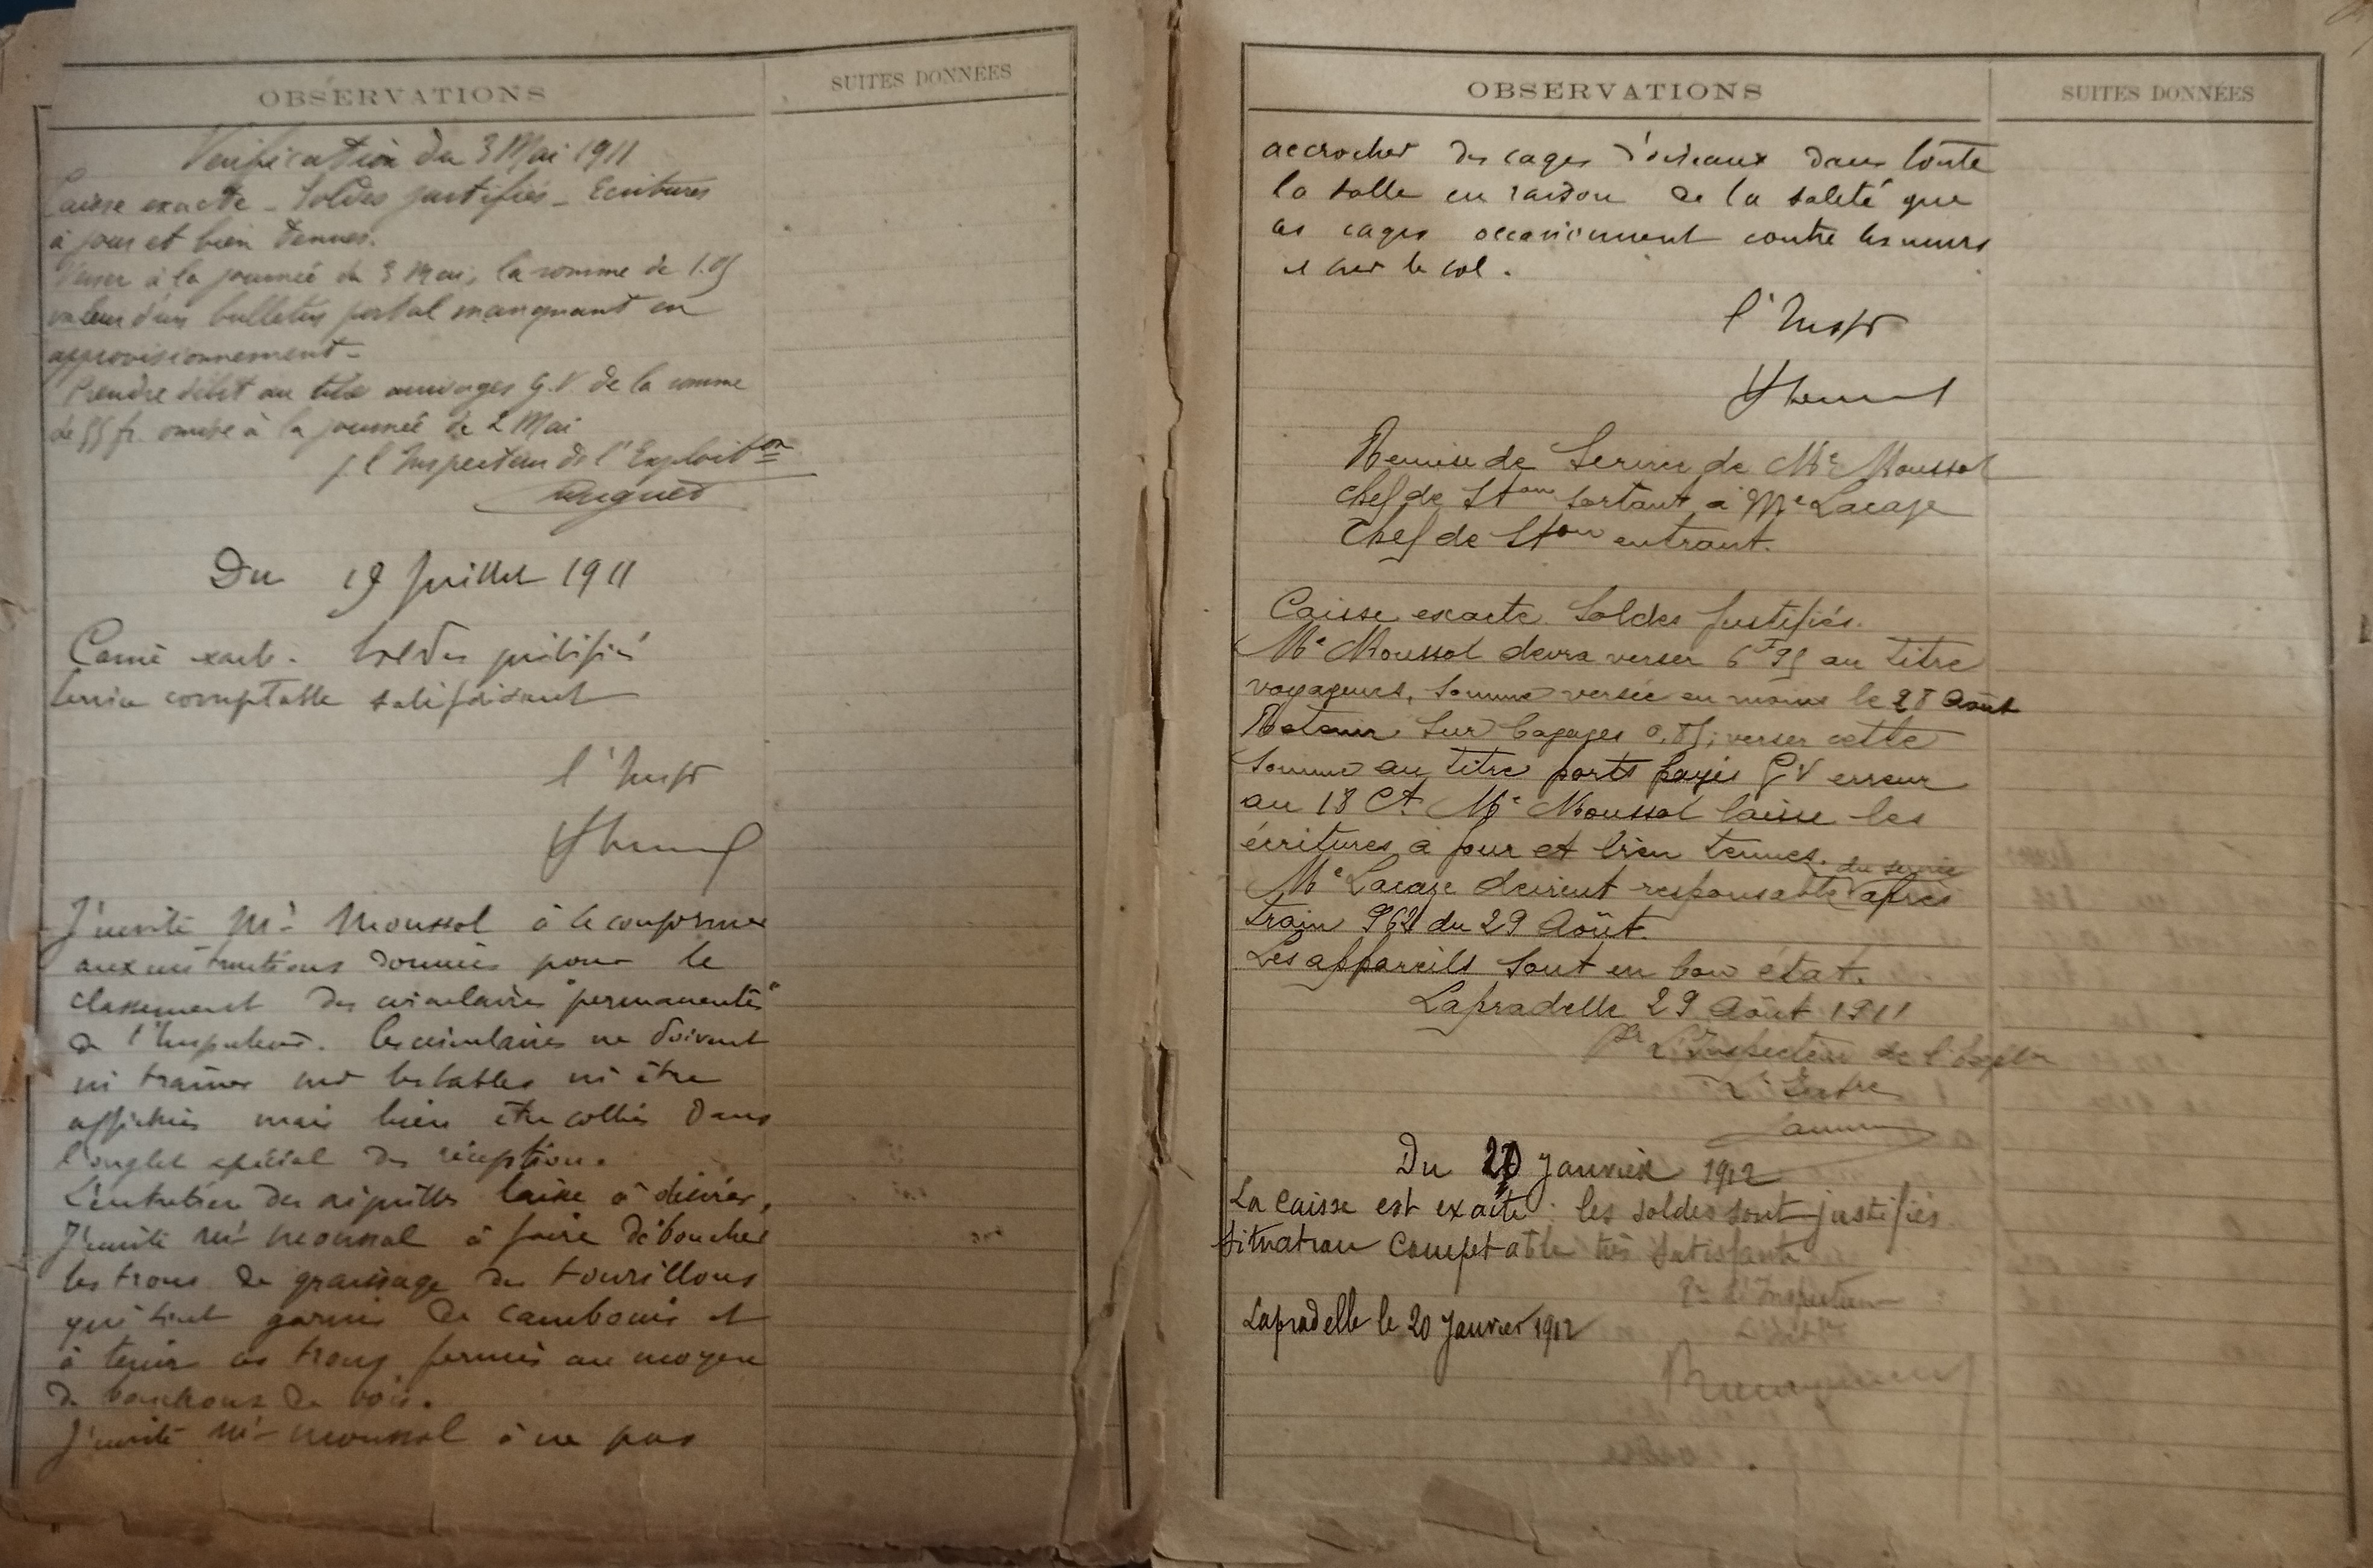 OBSERVATIONS
SUITES DONNÉES
Verification du 3 Mai 1911
Caisse exacte - Soldes justifiés - Ecritures
à jour et bien tenues.
Verser à la journée du 3 Mai, la somme de 1.05
valeur d'un bulletin postal manquant en
approvisionnement -
Prendre débit au titre arrivages G.V. de la somme
de 55 fr. omise à la journée de 2 Mai
p. l'Inspecteur de l'Exploiton
Du 19 Juillet 1911
Caisse exacte. Soldes justifiés
Service comptable satisfaisant
l'Inspr
J'invite Mr Moussol à se conformer
aux instructions données pour le
classement des circulaires "permanentes"
de l'Inspecteur. Ces circulaires ne doivent
ni traîner sur les tables ni être
affichées mais bien être collées dans
l'onglet spécial dès réception.
L'entretien des aiguilles laisse à désirer,
J'invite Mr Moussol à faire déboucher
les trous de graissage des tourillons
qui sont garnis de cambouis et
à tenir ces trous fermés au moyen
de bouchons de bois.
J'invite Mr Moussol à ne pas
OBSERVATIONS
SUITES DONNÉES
accrocher des cages d'oiseaux dans toute
la salle en raison de la saleté que
ces cages occasionnent contre les murs
et sur le sol.
l'Inspr
Remise de Service de Mr Moussol
Chef deSton sortant à Mr Lacaze
Chef deSton entrant.
Caisse exacte. Soldes justifiés.
Mr Moussol devra verser 6f95 au titre
voyageurs, somme versée en moins le 28 Août
Retenir sur bagages 0,85; verser cette
somme au titre ports payés GV erreur
au 18 Ct. Mr Moussol laisse les
écritures à jour et bien tenues.
du service
Mr Lacaze devient responsable après
train 962 du 29 Août.
Les appareils sont en bon état.
Lapradelle 29 Août 1911
Pr L'Inspecteur de l'Expl
Du 20 Janvier 1912
La caisse est exacte : les soldes sont justifiés
Situation comptable très satisfante
Pr l'Inspecteur
Lapradelle le 20 Janvier 1912